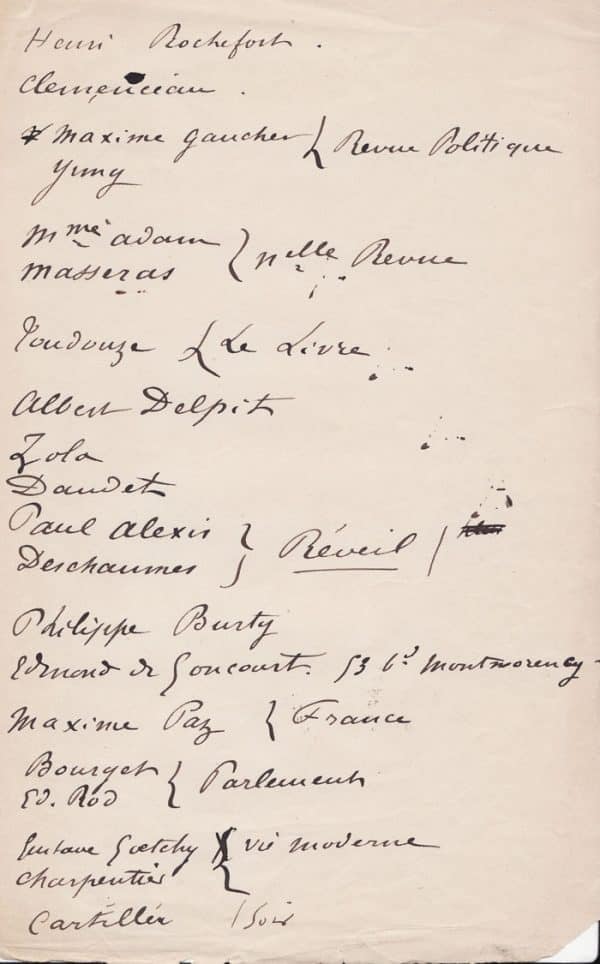 Henri Rochefort.
Clemenceau.
Maxime Gaucher { Revue Politique
Yung
Mme Adam } Nelle Revue
Masseras
Toudouze { Le Livre
Albert Delpit
Zola
Daudet
Paul Alexis } Réveil /
Deschaumes
Philippe Burty
Edmond de Goncourt. 53 bd Montmorency
Maxime Paz { France
Bourget { Parlement
Ed. Rod
Gustave Goetchy { vie moderne
Charpentier
Cartillier / Soir